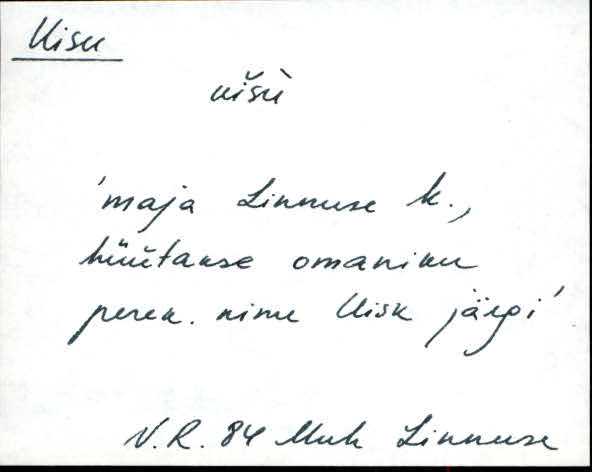 Uisu
uišù
'maja Linnuse k.,
hüütakse omaniku
perek. nime Uisk järgi'
V.R. 84 Muh Linnuse